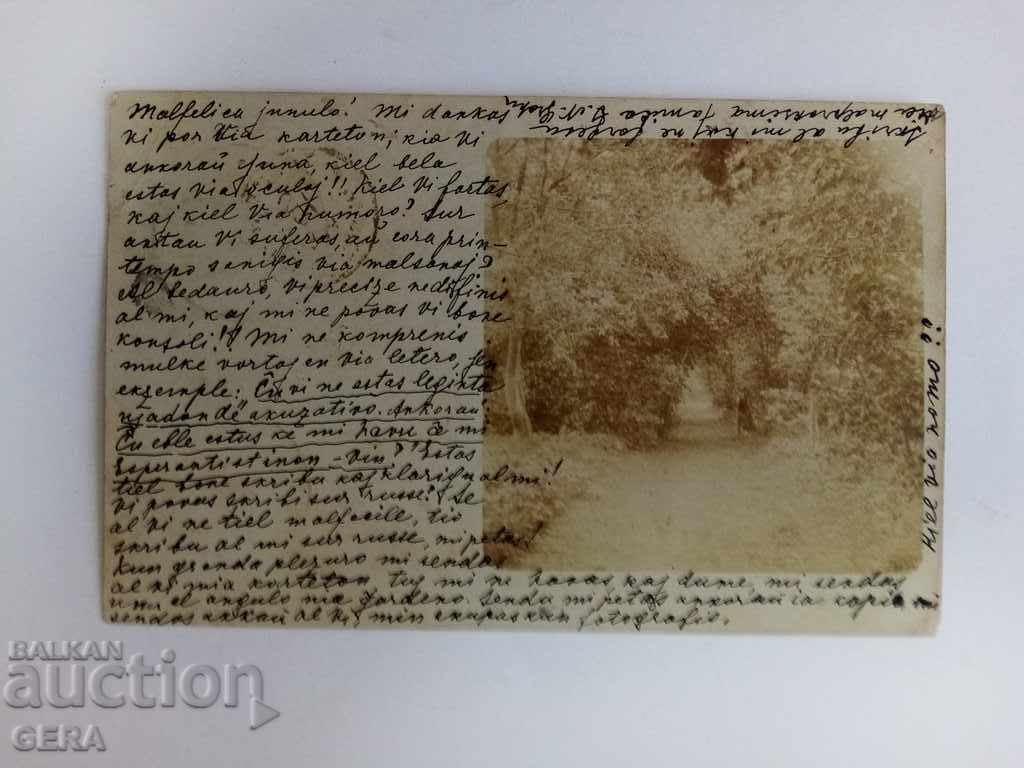 Malfelica junulo! Mi dankas
vi por via karteton; kia vi
ankoraŭ juna, kiel bela
estas via okuloj!! Kiel vi fartas
kaj kiel via humoro? Sur
vi suferas, aŭ printempo
sanigis via malsanoj?
Al vi precize
al mi, kaj mi ne povas vi bone
konsoli!! Mi ne komprenis
mulke vortoj en via letero, jen
ekzemple: Ĉu vi ne estas
akuzativo. Ankoraŭ
Ĉu eble estus ke mi
Esperantistinon - vin? Estas
tiel bone skribu kaj klarigu al mi!
Vi povas skribi sur russe! Se
al vi ne tiel malfecile, tio
skribu al mi sur russe, mi petas!
Kun granda plezuro mi sendas
al vi mia karteton, tuj mi ne havas kaj dume, mi sendas
unu el angulo mia ĝardeno. Sendu mi petas ankoraŭ ia
sendos ankaŭ al vi, min fotografis.
Skribu al mi kaj ne forgesu
malproksima
Kiel via nomo??
BALKAN
auction
GERA